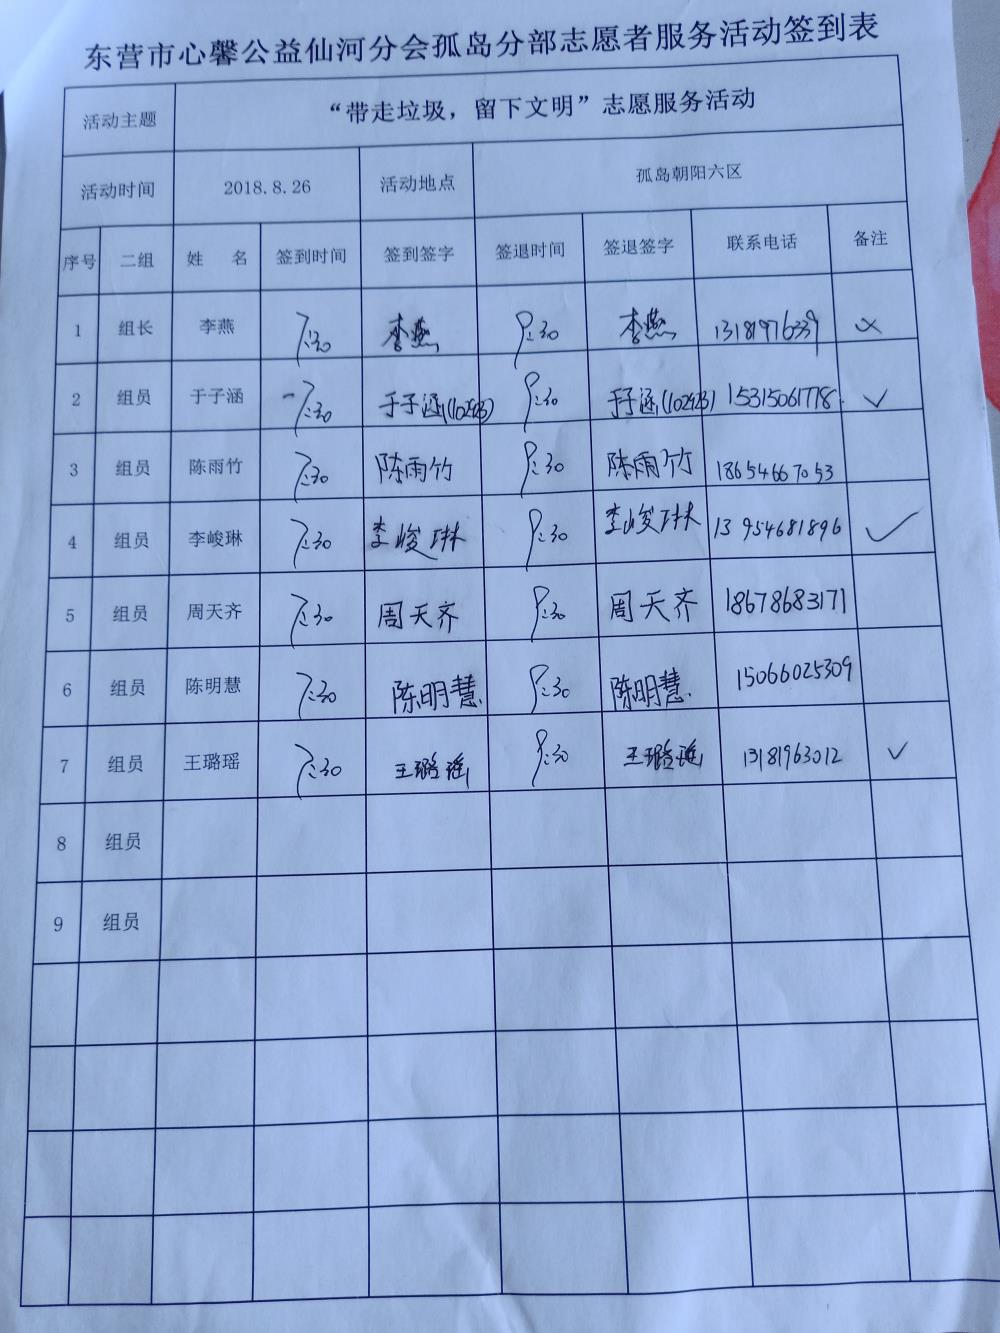 东营市心馨公益仙河分会孤岛分部志愿者服务活动签到表
活动主题 “带走垃圾，留下文明”志愿服务活动
活动时间 2018.8.26 活动地点 孤岛朝阳六区
序号 二组 姓 名 签到时间 签到签字 签退时间 签退签字 联系电话 备注
1 组长 李燕 7:30 李燕 9:30 李燕 13181976339 ×
2 组员 于子涵 7:30 于子涵(110293) 9:30 于子涵(110293) 15315061778 ✓
3 组员 陈雨竹 7:30 陈雨竹 9:30 陈雨竹 18654667053
4 组员 李峻琳 7:30 李峻琳 9:30 李峻琳 13954681896 ✓
5 组员 周天齐 7:30 周天齐 9:30 周天齐 18678683171
6 组员 陈明慧 7:30 陈明慧 9:30 陈明慧 15066025309
7 组员 王璐瑶 7:30 王璐瑶 9:30 王璐瑶 13181963012 ✓
8 组员
9 组员